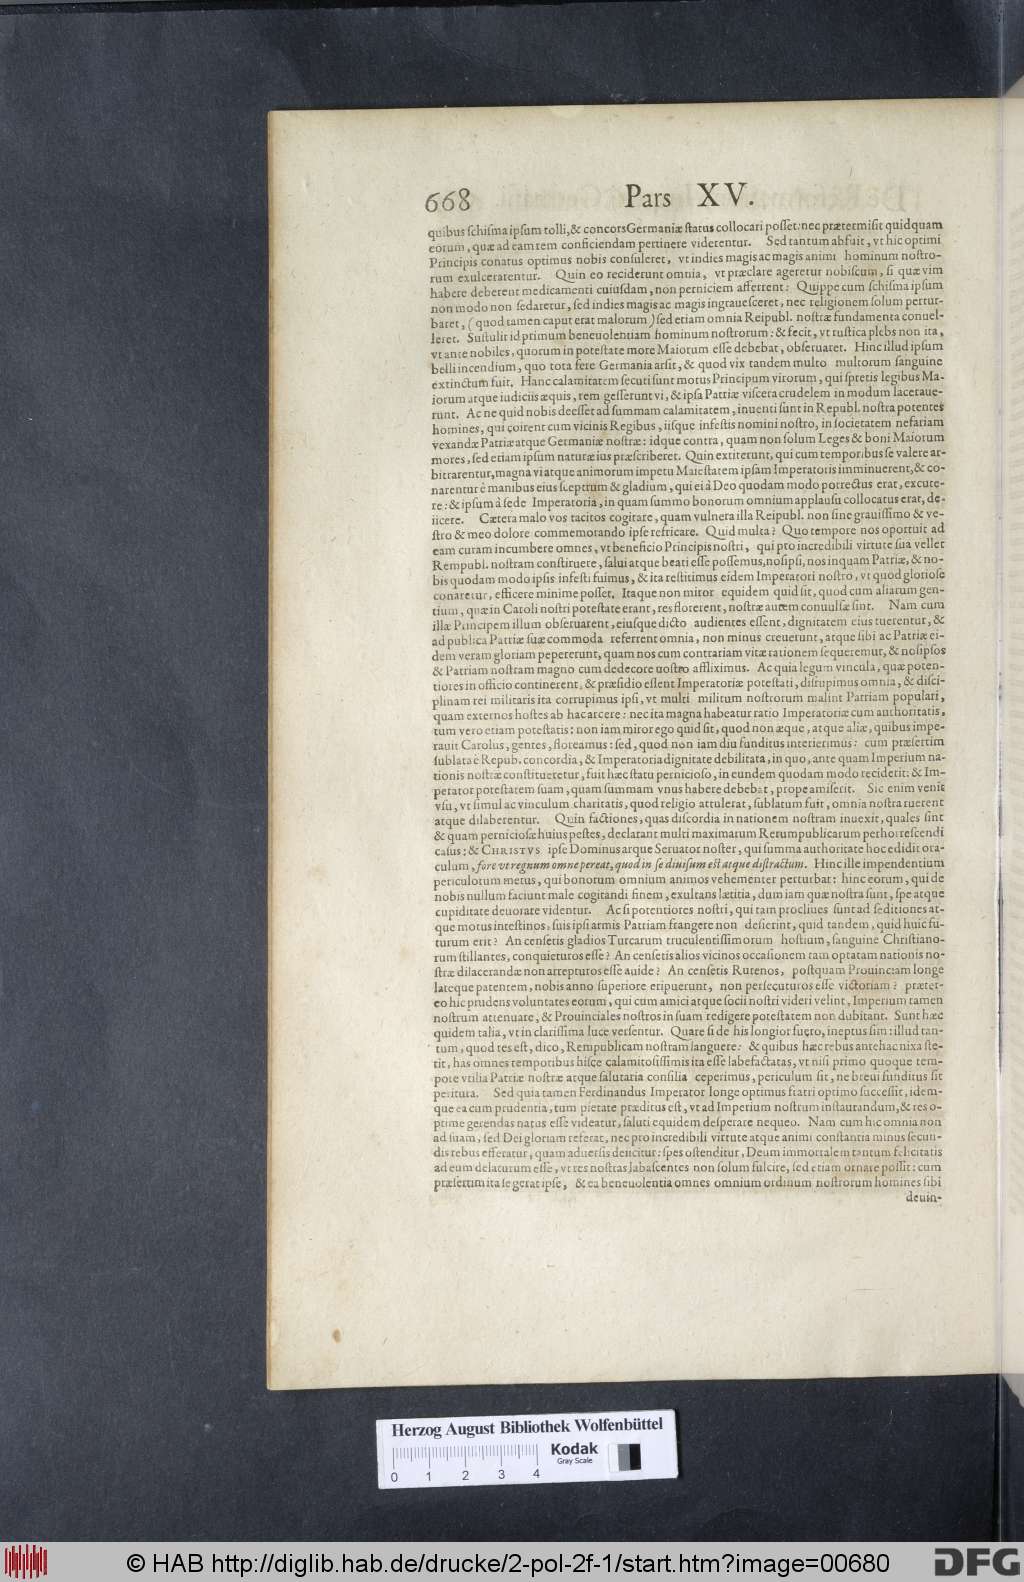 668 Pars XV.
quibus ſchiſma ipſum tolli, & concors Germaniæ ſtatus collocari poſſet: nec prætermiſit quidquam
eorum, quæ ad eam rem conficiendam pertinere viderentur. Sed tantum abfuit, vt hic optimi
Principis conatus optimus nobis conſuleret, vt indies magis ac magis animi hominum noſtro-
rum exulcerarentur. Quin eo reciderunt omnia, vt præclare ageretur nobiſcum, ſi quæ vim
habere deberent medicamenti cuiuſdam, non perniciem afferrent: Quippe cum ſchiſma ipſum
non modo non ſedaretur, ſed indies magis ac magis ingraueſceret, nec religionem ſolum pertur-
baret, (quod tamen caput erat malorum) ſed etiam omnia Reipubl. noſtræ fundamenta conuel-
leret. Suſtulit id primum beneuolentiam hominum noſtrorum: & fecit, vt ruſtica plebs non ita,
vt ante nobiles, quorum in poteſtate more Maiorum eſſe debebat, obſeruaret. Hinc illud ipſum
belli incendium, quo tota fere Germania arſit, & quod vix tandem multo multorum ſanguine
extinctum fuit. Hanc calamitatem ſecuti ſunt motus Principum virorum, qui ſpretis legibus Ma-
iorum atque iudiciis æquis, rem geſſerunt vi, & ipſa Patriæ viſcera crudelem in modum laceraue-
runt. Ac ne quid nobis deeſſet ad ſummam calamitatem, inuenti ſunt in Republ. noſtra potentes
homines, qui coirent cum vicinis Regibus, iiſque infeſtis nomini noſtro, in ſocietatem nefariam
vexandæ Patriæ atque Germaniæ noſtræ: idque contra, quam non ſolum Leges & boni Maiorum
mores, ſed etiam ipſum naturæ ius præſcriberet. Quin extiterunt, qui cum temporibus ſe valere ar-
bitrarentur, magna vi atque animorum impetu Maieſtatem ipſam Imperatoris imminuerent, & co-
narentur è manibus eius ſceptrum & gladium, qui ei à Deo quodam modo porrectus erat, excute-
re: & ipſum à ſede Imperatoria, in quam ſummo bonorum omnium applauſu collocatus erat, de-
iicere. Cætera malo vos tacitos cogitare, quam vulnera illa Reipubl. non ſine grauiſſimo & ve-
ſtro & meo dolore commemorando ipſe refricare. Quid multa? Quo tempore nos oportuit ad
eam curam incumbere omnes, vt beneficio Principis noſtri, qui pro incredibili virtute ſua vellet
Rempubl. noſtram conſtituere, ſalui atque beati eſſe poſſemus, noſipſi, nos inquam Patriæ, & no-
bis quodam modo ipſis infeſti fuimus, & ita reſtitimus eidem Imperatori noſtro, vt quod glorioſe
conaretur, efficere minime poſſet. Itaque non miror equidem quid ſit, quod cum aliarum gen-
tium, quæ in Caroli noſtri poteſtate erant, res florerent, noſtræ autem conuulſæ ſint. Nam cum
illæ Principem illum obſeruarent, eiuſque dicto audientes eſſent, dignitatem eius tuerentur, &
ad publica Patriæ ſuæ commoda referrent omnia, non minus creuerunt, atque ſibi ac Patriæ ei-
dem veram gloriam pepererunt, quam nos cum contrariam vitæ rationem ſequeremur, & noſipſos
& Patriam noſtram magno cum dedecore noſtro affliximus. Ac quia legum vincula, quæ poten-
tiores in officio continerent, & præſidio eſſent Imperatoriæ poteſtati, diſrupimus omnia, & diſci-
plinam rei militaris ita corrupimus ipſi, vt multi militum noſtrorum malint Patriam populari,
quam externos hoſtes ab hac arcere: nec ita magna habeatur ratio Imperatoriæ cum authoritatis,
tum vero etiam poteſtatis: non iam miror ego quid ſit, quod non æque, atque aliæ, quibus impe-
rauit Carolus, gentes, floreamus: ſed, quod non iam diu funditus interierimus: cum præſertim
ſublata è Repub. concordia, & Imperatoria dignitate debilitata, in quo, ante quam Imperium na-
tionis noſtræ conſtitueretur, fuit hæc ſtatu pernicioſo, in eundem quodam modo reciderit: & Im-
perator poteſtatem ſuam, quam ſummam vnus habere debebat, prope amiſerit. Sic enim venit
vſu, vt ſimul ac vinculum charitatis, quod religio attulerat, ſublatum fuit, omnia noſtra ruerent
atque dilaberentur. Quin factiones, quas diſcordia in nationem noſtram inuexit, quales ſint
& quam pernicioſæ huius peſtes, declarant multi maximarum Rerumpublicarum perhorreſcendi
caſus: & CHRISTVS ipſe Dominus atque Seruator noſter, qui ſumma authoritate hoc edidit ora-
culum, fore vt regnum omne pereat, quod in ſe diuiſum eſt atque diſtractum. Hinc ille impendentium
periculorum metus, qui bonorum omnium animos vehementer perturbat: hinc eorum, qui de
nobis nullum faciunt male cogitandi finem, exultans lætitia, dum iam quæ noſtra ſunt, ſpe atque
cupiditate deuorare videntur. Ac ſi potentiores noſtri, qui tam procliues ſunt ad ſeditiones at-
que motus inteſtinos, ſuis ipſi armis Patriam frangere non deſierint, quid tandem, quid huic fu-
turum erit? An cenſetis gladios Turcarum truculentiſſimorum hoſtium, ſanguine Chriſtiano-
rum ſtillantes, conquieturos eſſe? An cenſetis alios vicinos occaſionem tam optatam nationis no-
ſtræ dilacerandæ non arrepturos eſſe auide? An cenſetis Rutenos, poſtquam Prouinciam longe
lateque patentem, nobis anno ſuperiore eripuerunt, non perſecuturos eſſe victoriam? præter-
eo hic prudens voluntates eorum, qui cum amici atque ſocii noſtri videri velint, Imperium tamen
noſtrum attenuare, & Prouinciales noſtros in ſuam redigere poteſtatem non dubitant. Sunt hæc
quidem talia, vt in clariſſima luce verſentur. Quare ſi de his longior fuero, ineptus ſim: illud tan-
tum, quod res eſt, dico, Rempublicam noſtram languere: & quibus hæc rebus antehac nixa ſte-
tit, has omnes temporibus hiſce calamitoſiſſimis ita eſſe labefactatas, vt niſi primo quoque tem-
pore vtilia Patriæ noſtræ atque ſalutaria conſilia ceperimus, periculum ſit, ne breui funditus ſit
peritura. Sed quia tamen Ferdinandus Imperator longe optimus fratri optimo ſucceſſit, idem-
que ea cum prudentia, tum pietate præditus eſt, vt ad Imperium noſtrum inſtaurandum, & res o-
ptime gerendas natus eſſe videatur, ſaluti equidem deſperare nequeo. Nam cum hic omnia non
ad ſuam, ſed Dei gloriam referat, nec pro incredibili virtute atque animi conſtantia minus ſecun-
dis rebus efferatur, quam aduerſis deiicitur: ſpes oſtenditur, Deum immortalem tantum felicitatis
ad eum delaturum eſſe, vt res noſtras labaſcentes non ſolum fulcire, ſed etiam ornare poſſit: cum
præſertim ita ſe gerat ipſe, & ea beneuolentia omnes omnium ordinum noſtrorum homines ſibi
deuin-
Herzog August Bibliothek Wolfenbüttel
Kodak
Gray Scale
0 1 2 3 4
© HAB http://diglib.hab.de/drucke/2-pol-2f-1/start.htm?image=00680
DFG